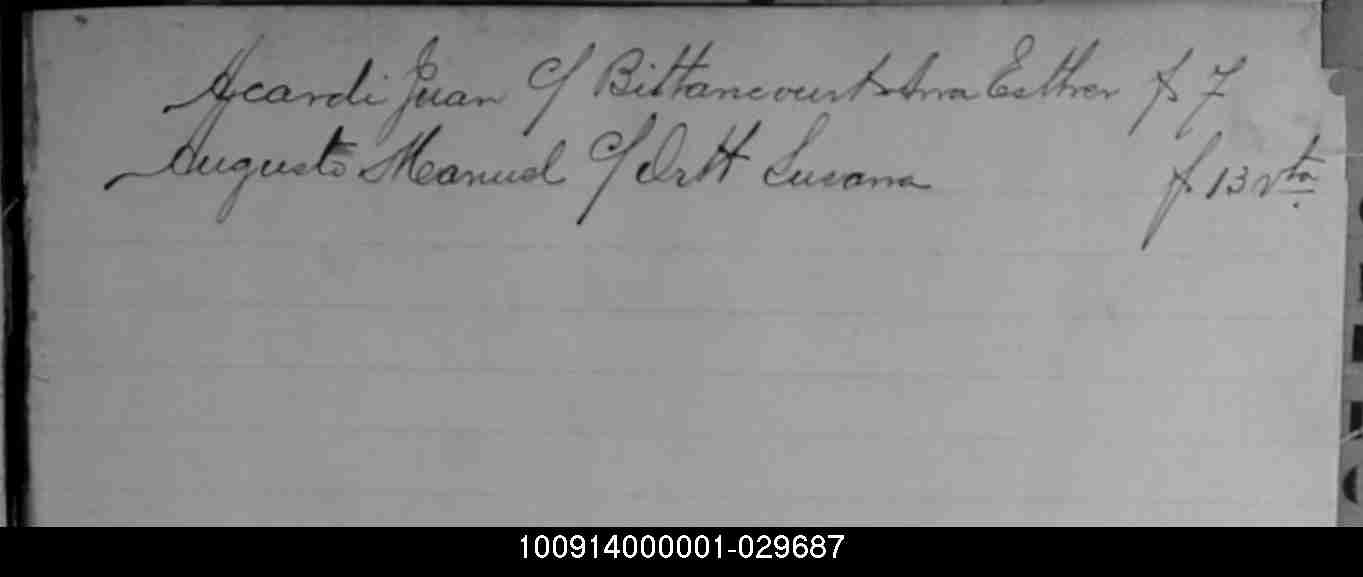 Acardi Juan c/ Bittancourt Ana Esther f 7
Augusto Manuel c/ Ortt Susana f 13 vta.
100914000001-029687